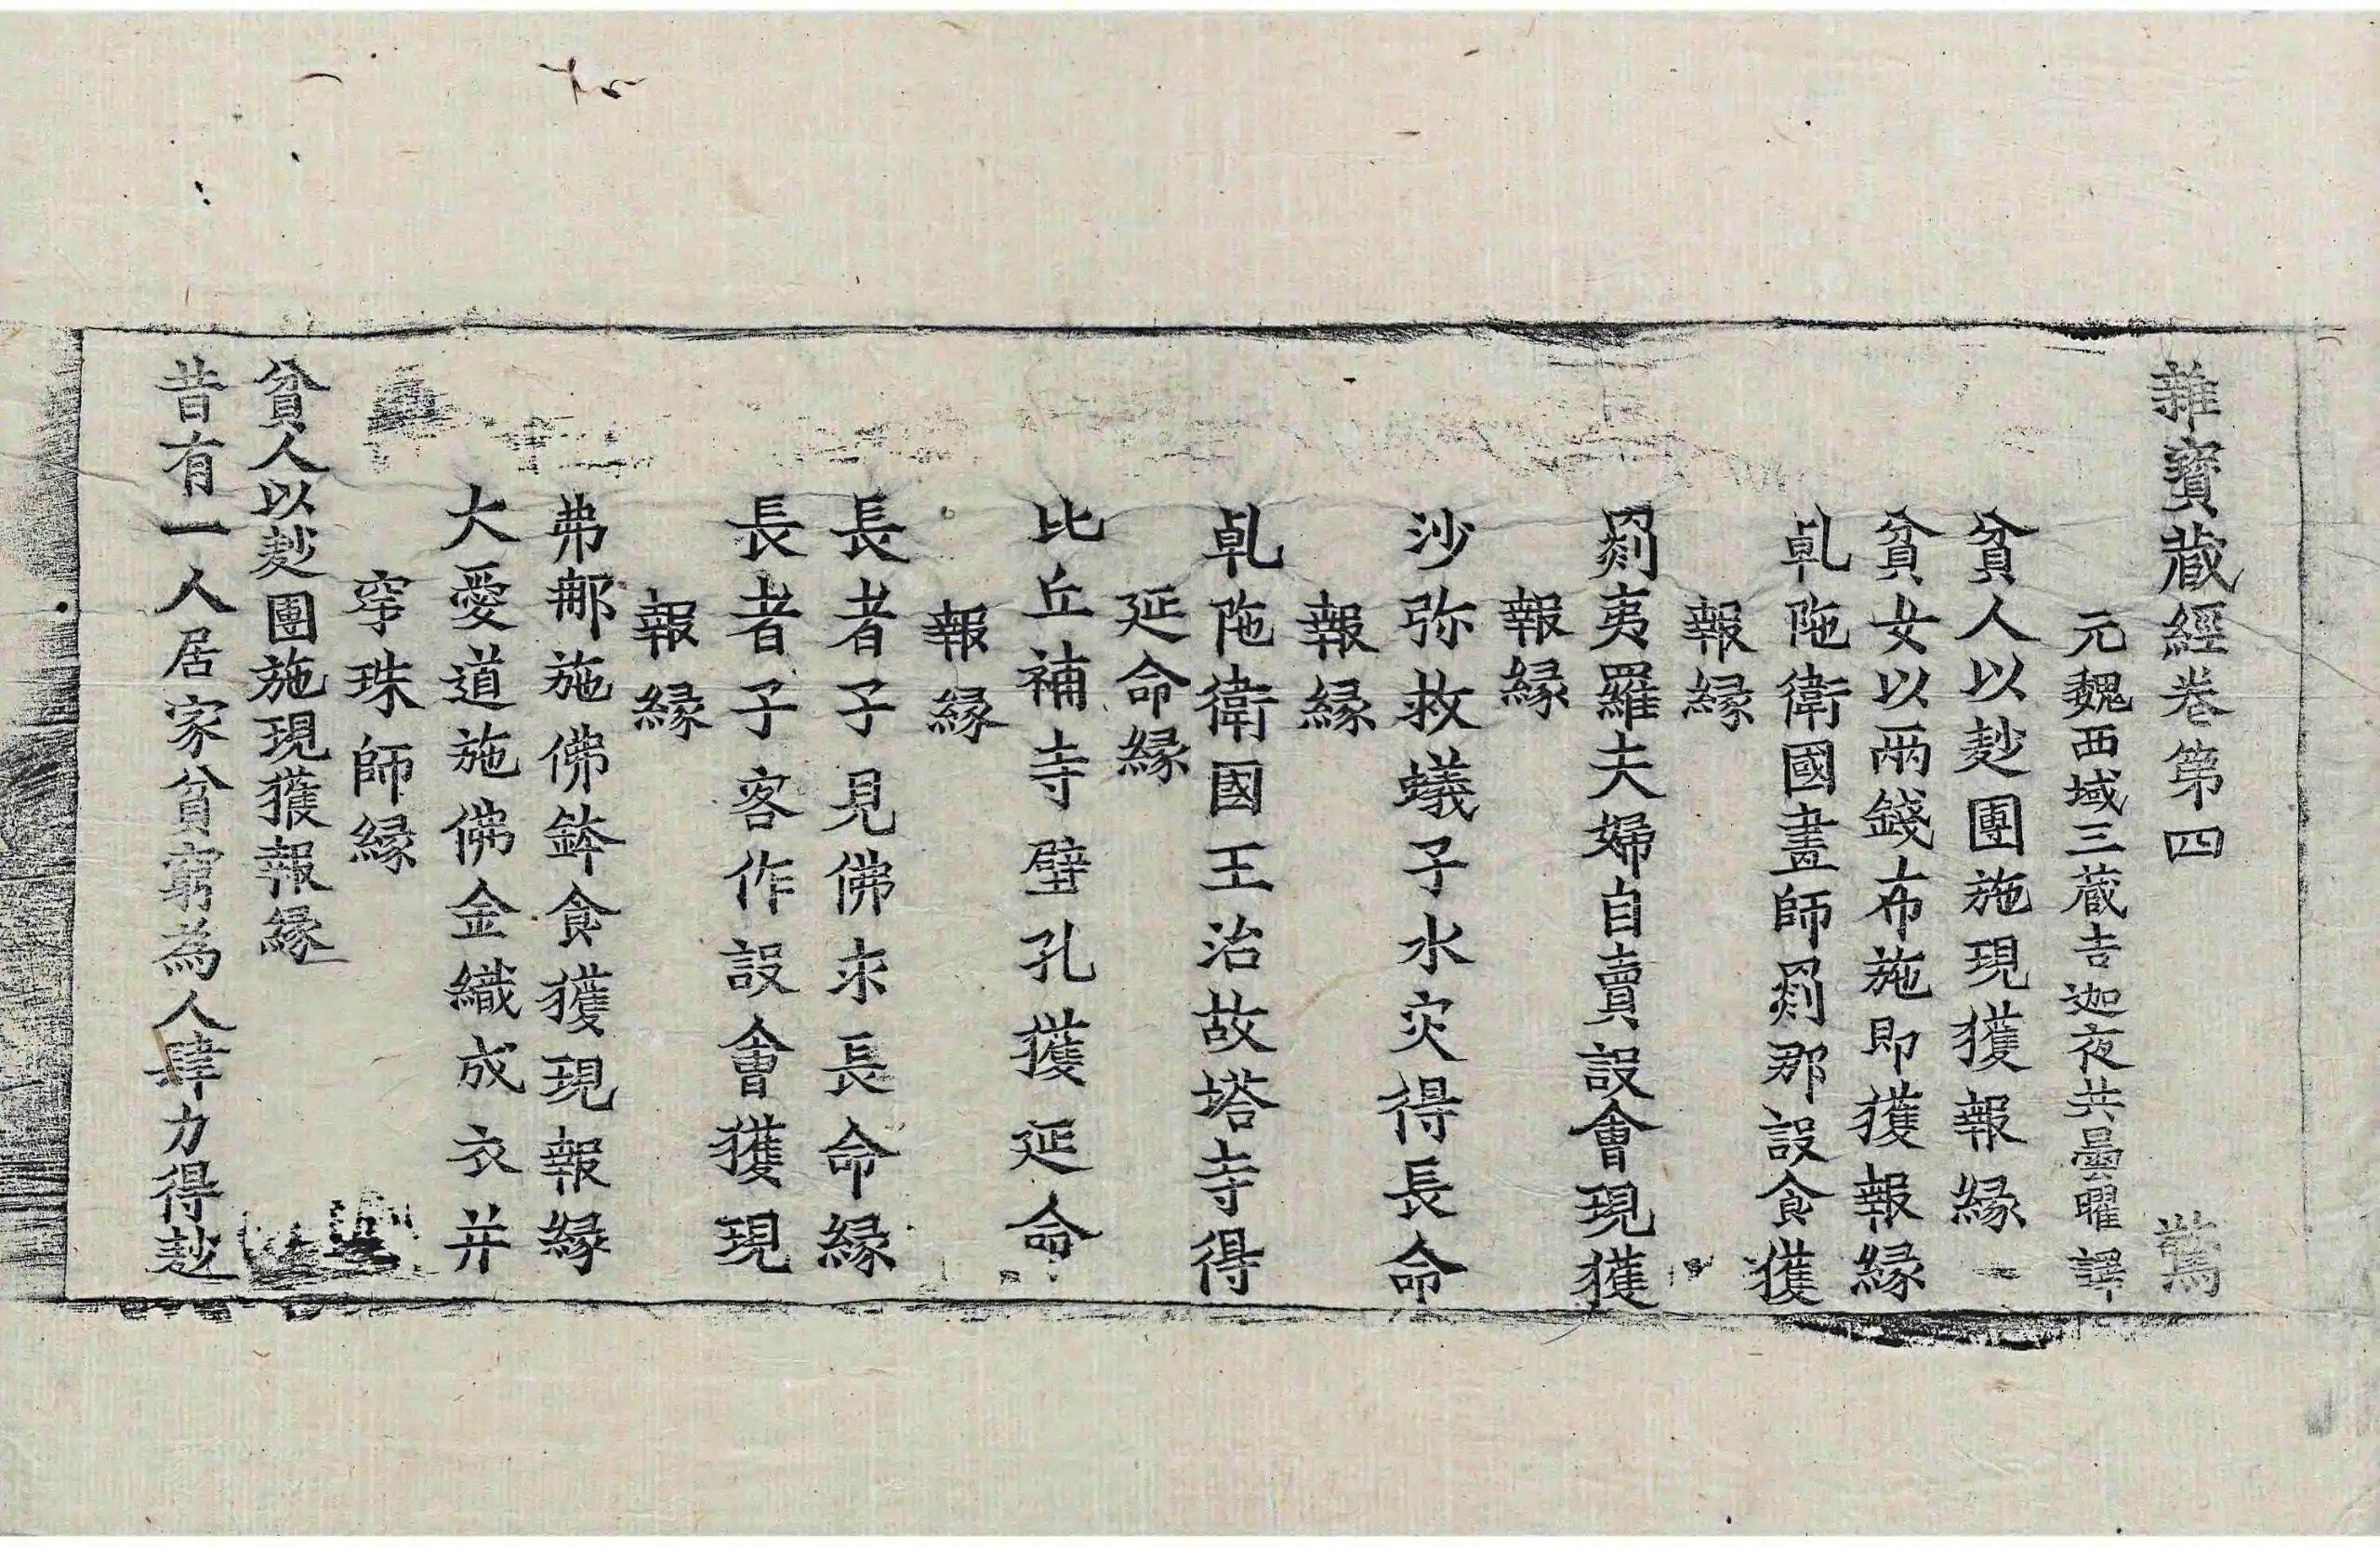 雜寶蔵經卷第四 驚
元魏西域三蔵吉迦夜共曇曜譯
貧人以麨團施現獲報縁
貧女以兩錢布施即獲報縁
乹陁衛國畫師罽那設食獲
報縁
罽夷羅夫婦自賣設會現獲
報縁
沙弥救蟻子水灾得長命
報縁
乹陁衛國王治故塔寺得
延命縁
比丘補寺壁孔獲延命
報縁
長者子見佛求長命縁
長者子客作設會獲現
報縁
弗那施佛鉢食獲現報縁
大愛道施佛金織成衣并
穿珠師縁
貧人以麨團施現獲報縁
昔有一人居家貧窮為人肆力得麨